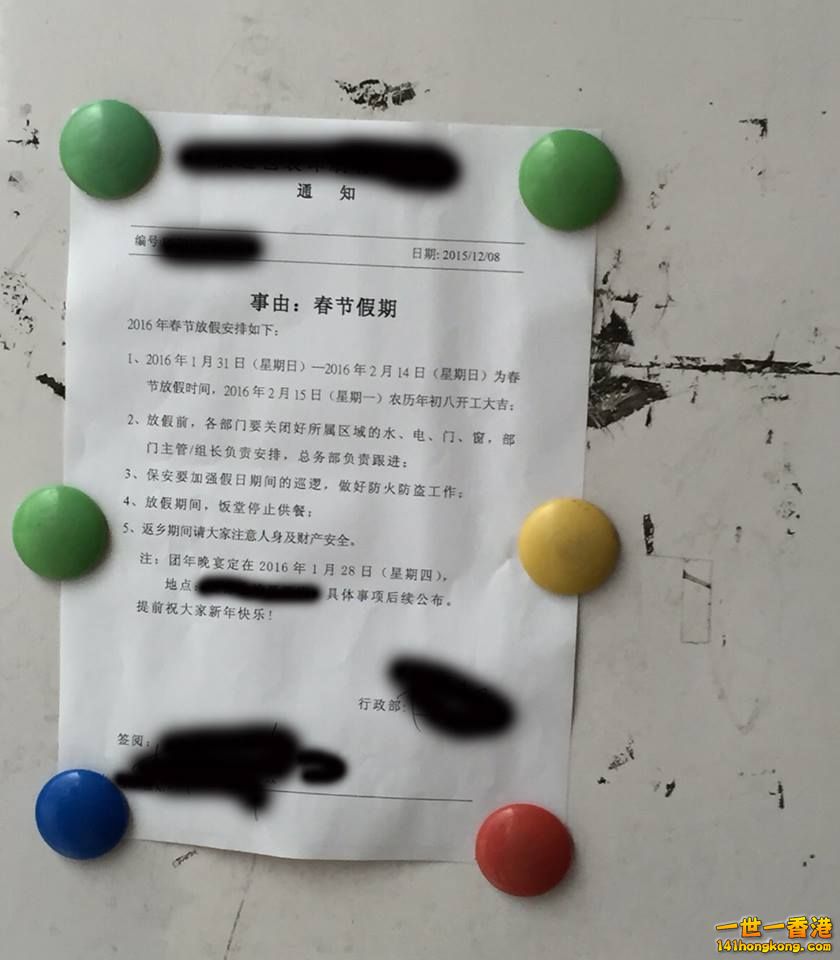 通 知
编号
日期: 2015/12/08
事由：春节假期
2016 年春节放假安排如下：
1、2016 年 1 月 31 日（星期日）—2016 年 2 月 14 日（星期日）为春
节放假时间，2016 年 2 月 15 日（星期一）农历年初八开工大吉；
2、放假前，各部门要关闭好所属区域的水、电、门、窗，部
门主管/组长负责安排，总务部负责跟进；
3、保安要加强假日期间的巡逻，做好防火防盗工作；
4、放假期间，饭堂停止供餐；
5、返乡期间请大家注意人身及财产安全。
注：团年晚宴定在 2016 年 1 月 28 日（星期四），
地点： 具体事项后续公布。
提前祝大家新年快乐！
行政部：
签阅：
一世一香港
141hongkong.com